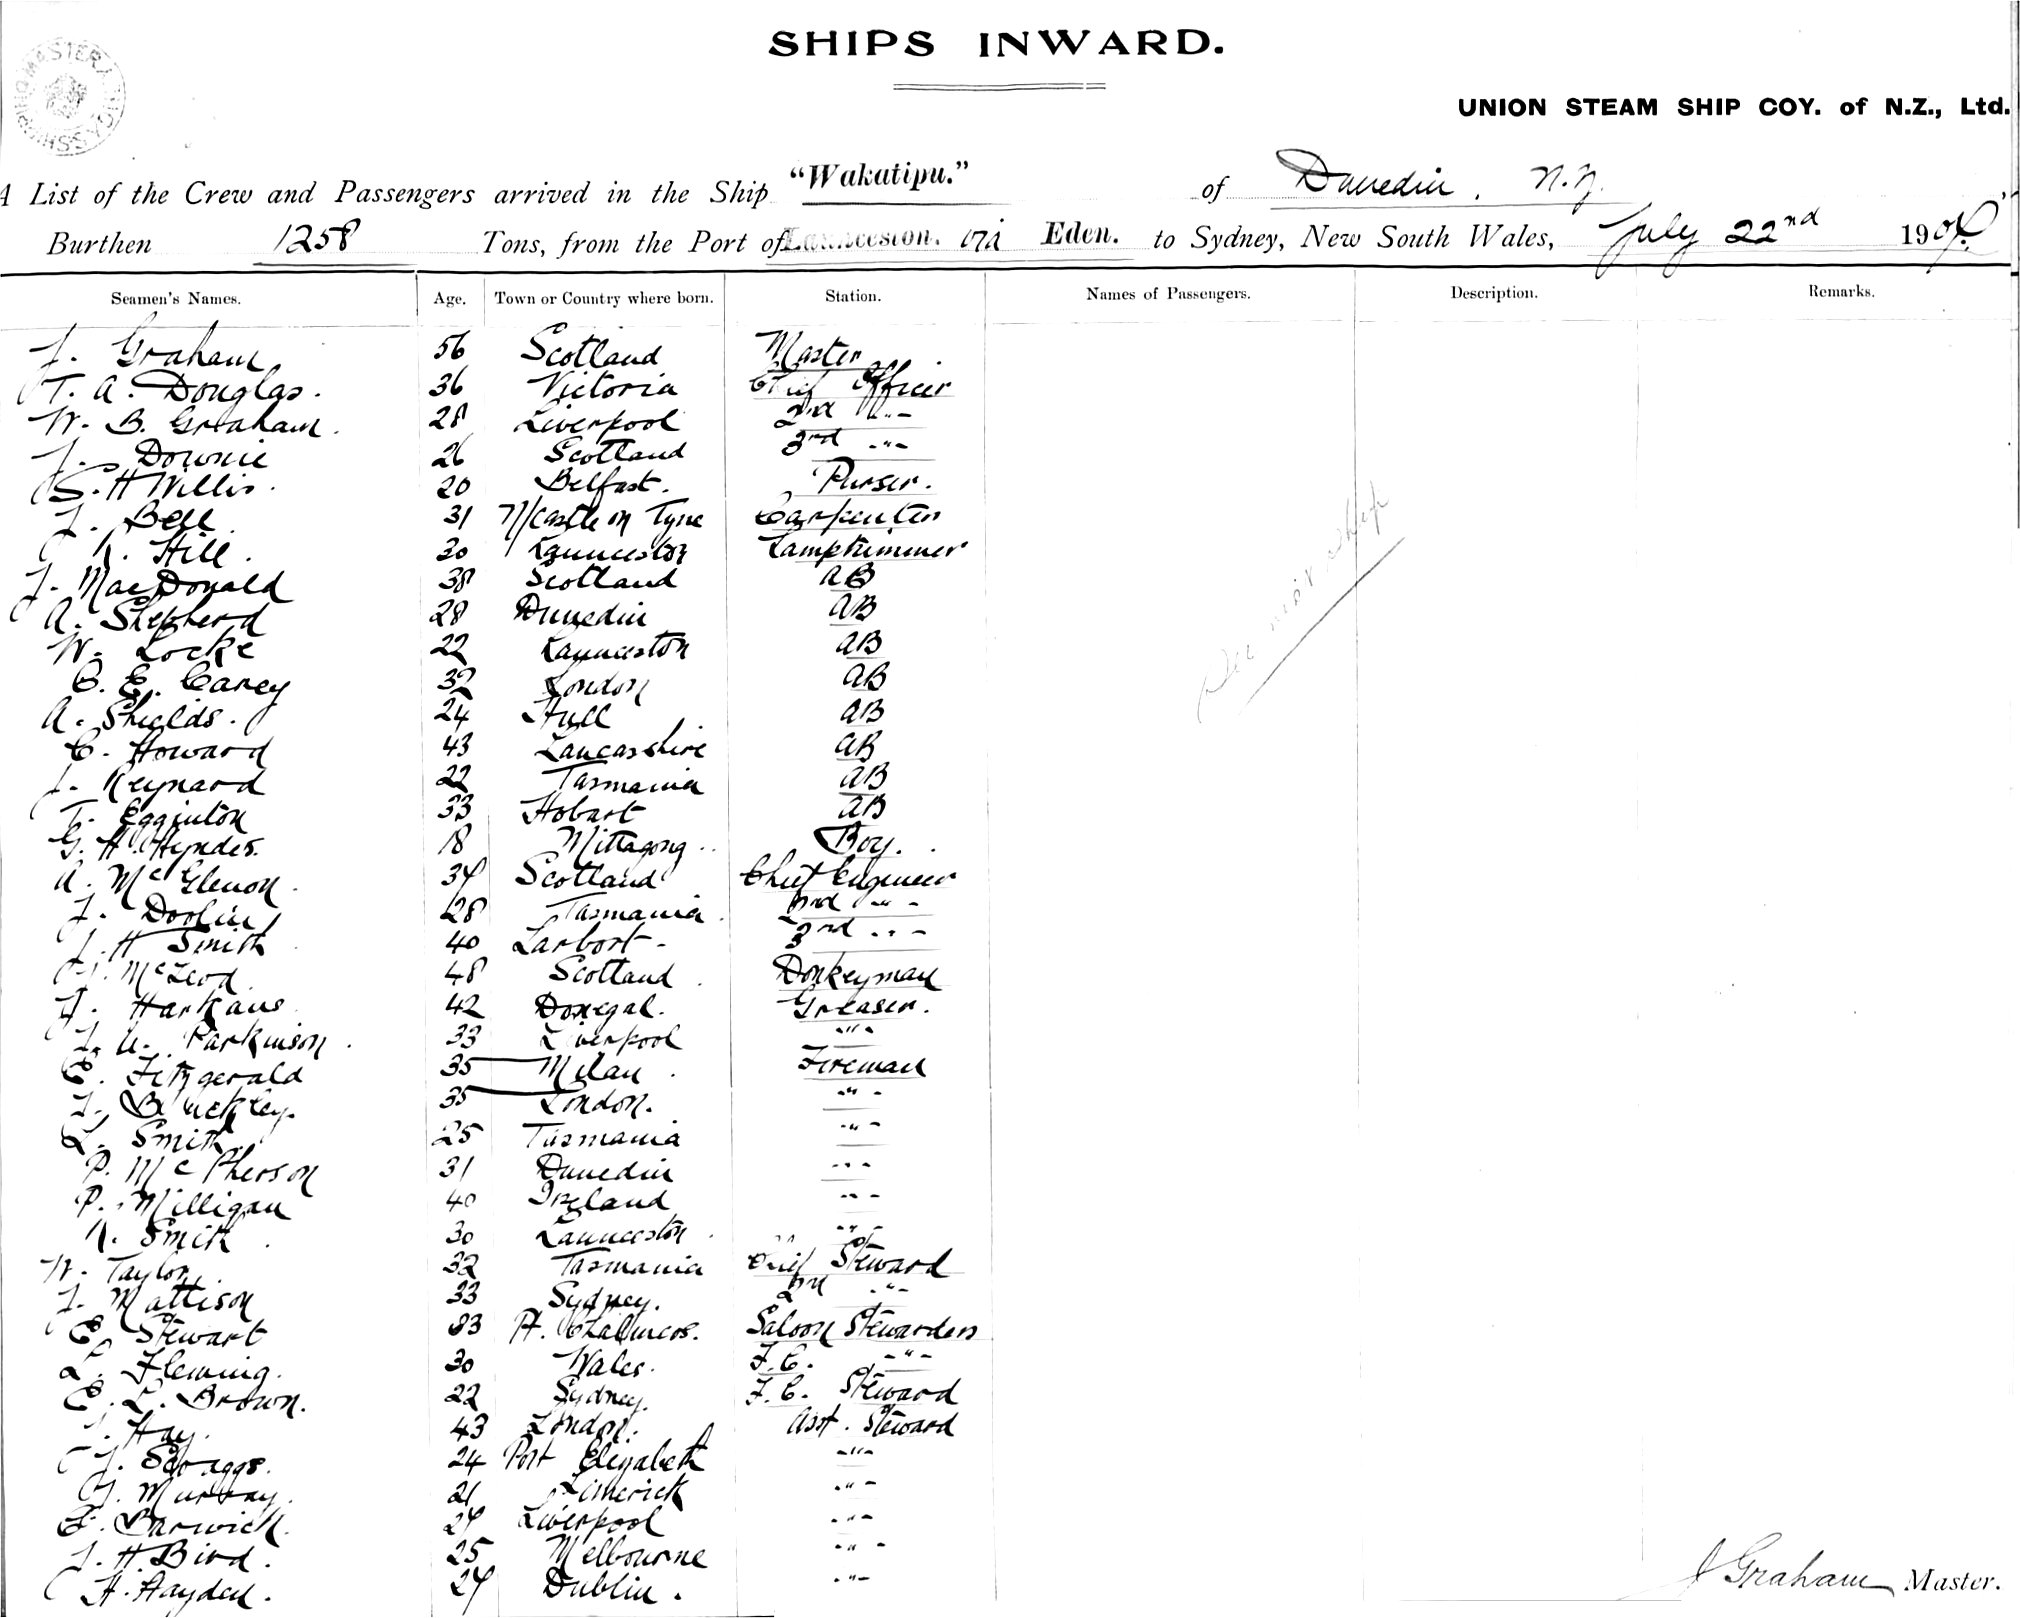 SHIPS INWARD.
UNION STEAM SHIP COY. of N.Z., Ltd.
A List of the Crew and Passengers arrived in the Ship "Wakatipu." of Dunedin, N.Z.
Burthen 1258 Tons, from the Port of Launceston. via Eden. to Sydney, New South Wales, July 22nd 190
Seamen's Names. Age. Town or Country where born. Station. Names of Passengers. Description. Remarks.
J. Graham 56 Scotland Master
T. A. Douglas. 36 Victoria Chief Officer
W. B. Graham. 28 Liverpool 2nd "
J. Downie 26 Scotland 3rd "
S. H Willis. 20 Belfast. Purser.
J. Bell 31 N/castle on Tyne Carpenter
Hill. 30 Launceston Lamptrimmer
J. MacDonald 38 Scotland AB
A. Shepherd 28 Dunedin AB
W. Locke 22 Launceston AB
C. E. Carey 32 London AB
A. Shields. 24 Hull AB
C. Howard 43 Lancashire AB
J. Reynard 22 Tasmania AB
T. Egginton 33 Hobart AB
G. H. Hyndes. 18 Mittagong Boy.
A. McGlenon. 34 Scotland Chief Engineer
J. Doolin 28 Tasmania 2nd "
J. H Smith 40 Larbort 3rd "
McLeod 48 Scotland Donkeyman
Harkans 42 Donegal. Greaser.
J. A. Parkinson. 33 Liverpool "
E. Fitzgerald 35 Milan. Fireman
J. Buckley. 35 London. "
L. Smith 25 Tasmania "
P. McPherson 31 Dunedin "
P. Milligan 40 Ireland "
Smith 30 Launceston "
W. Taylor 32 Tasmania Chief Steward
J. Mattison 33 Sydney. 2nd "
E. Stewart 33 Pt. Chalmers. Saloon Stewardess
L. Fleming. 30 Wales. F.C. "
E. L. Brown. 22 Sydney. F.C. Steward
J. Hay. 43 London. Asst. Steward
J. Scraggs. 24 Port Elizabeth "
Murray. 21 Limerick "
F. Barwick. 24 Liverpool "
J. H. Bird. 25 Melbourne "
H. Hayden. 24 Dublin. "
J Graham Master.